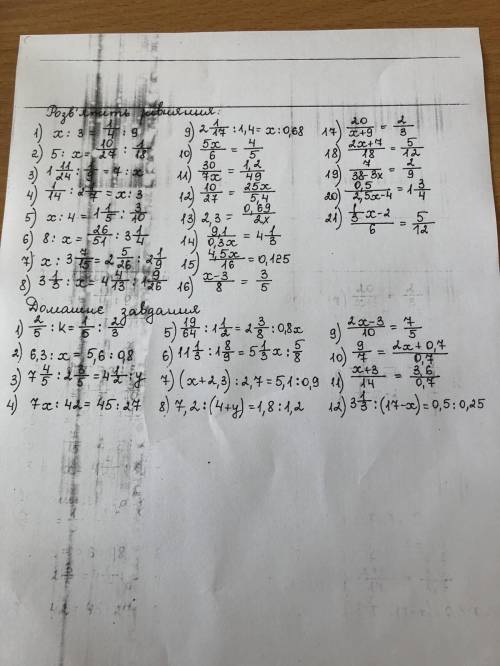 Розв'яжіть рівняння:
1) x : 3 = 1/4 : 9
2) 5 : x = 10/27 : 1/18
3) 1 11/24 : = 7 : x
4) 1/14 : = x : 3
5) x : 4 = 1 1/5 : 3/10
6) 8 : x = 26/51 : 3 1/4
7) x : 3 = 2 5/26 : 2 1/9
8) 3 1/3 : x = 4 4/13 : 1 9/126
9) 2 1/17 : 1,4 = x : 0,68
10) 5x/6 = 4/5
11) 30/7x = 1,2/49
12) 10/27 = 25x/5,4
13) 2,3 = 0,69/2x
14) 9,1/0,3x = 4 1/3
15) 4,5x/16 = 0,125
16) x-3/8 = 3/5
17) 20/x+9 = 2/3
18) 2x+7/18 = 5/12
19) 7/38-3x = 2/9
20) 0,5/2,5x-4 = 1 3/4
21) 1/3 x-2/6 = 5/12
Домашнє завдання
1) 2/5 : k = 1/5 : 20/3
2) 6,3 : x = 5,6 : 0,8
3) 7 4/5 : 2 3/5 = 4 1/2 : y
4) 7x : 42 = 45 : 27
5) 19/64 : 1 1/2 = 2 3/8 : 0,8x
6) 11 1/3 : 1 8/9 = 5 1/3 x : 5/8
7) (x+2,3) : 2,7 = 5,1 : 0,9
8) 7,2 : (4+y) = 1,8 : 1,2
9) 2x-3/10 = 7/5
10) 9/7 = 2x+0,7/0,7
11) x+3/14 = 3,6/0,7
12) 3 1/3 : (17-x) = 0,5 : 0,25